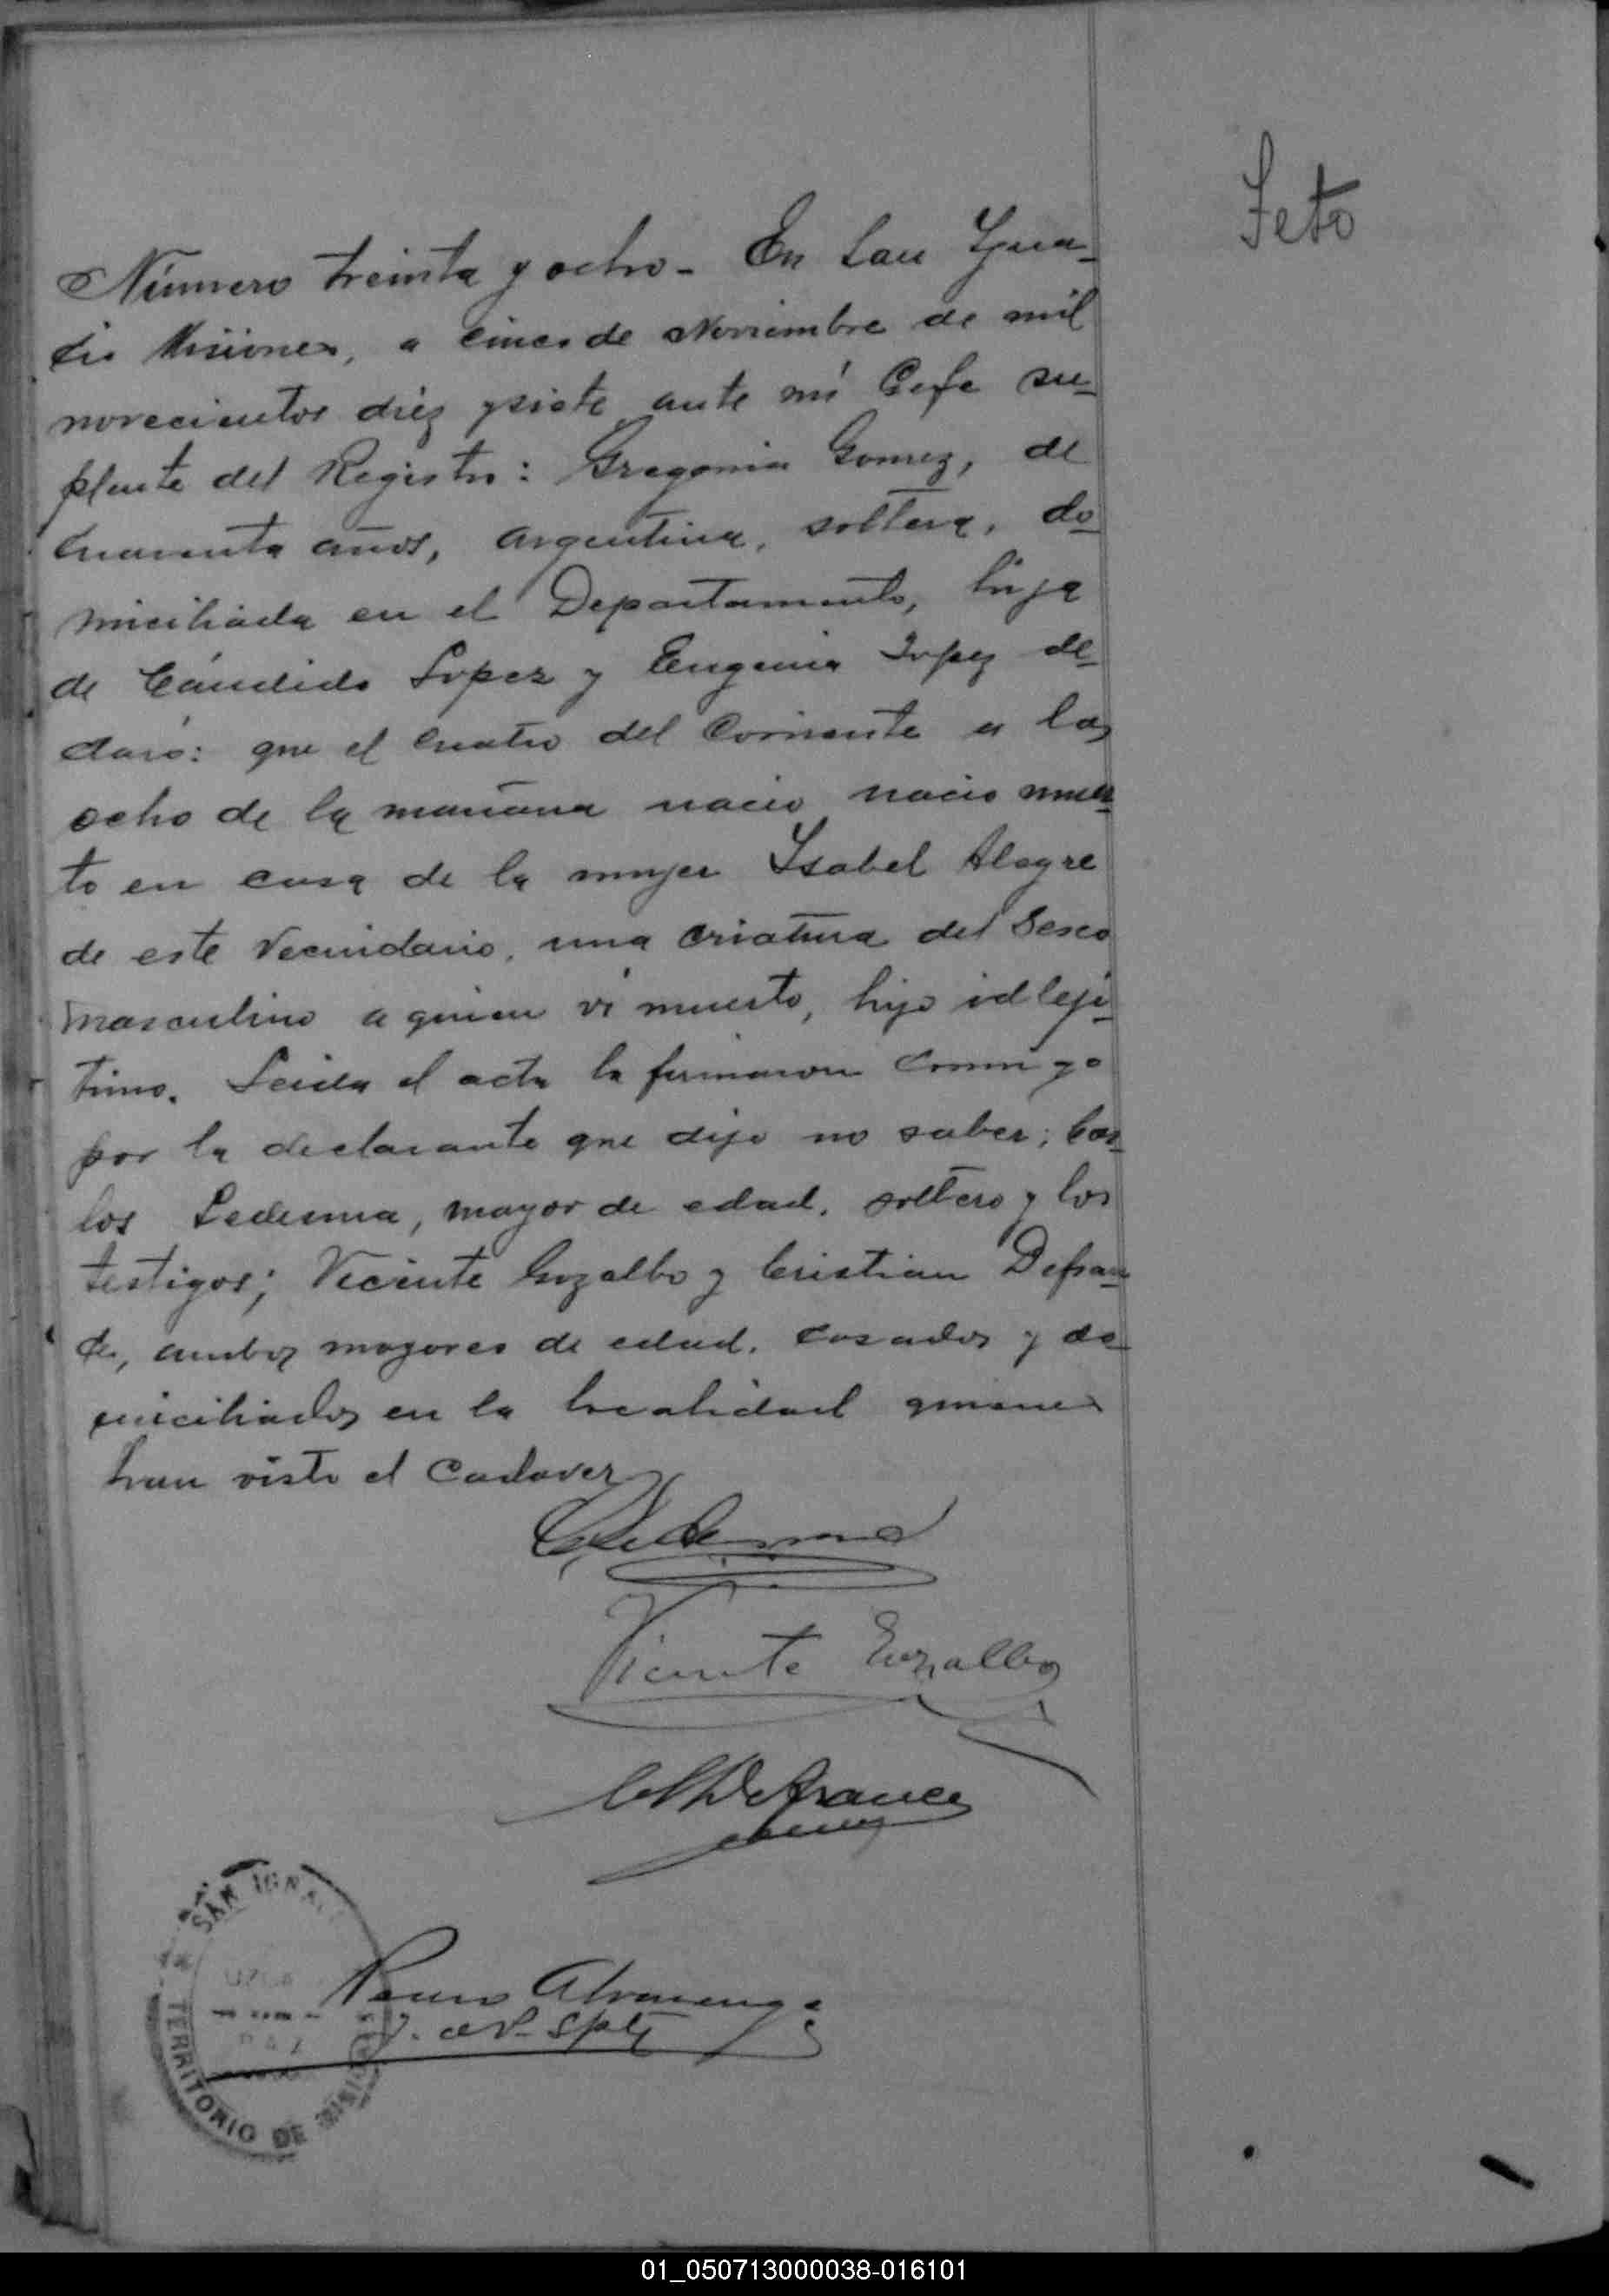 Feto
Número treinta y ocho - En San Ygna-
cio Misiones, a cinco de Noviembre de mil
novecientos diéz y siete ante mi Gefe su-
plente del Registro: Gregoria Gomez, de
cuarenta años, argentina, soltera, do-
miciliada en el Departamento, hija
de Cándido Lopez y Eugenia Lopez de-
claró: que el cuatro del corriente a las
ocho de la mañana nacio nacio muer-
to en casa de la mujer Ysabel Alegre
de este Vecindario, una criatura del Sexo
masculino a quien vi muerto, hijo idleji-
timo. Leida el acta la firmaron conmigo
por la declarante que dijo no saber; Car-
los Ledesma, mayor de edad, soltero y los
testigos; Vicente Gozalbo y Cristian Defran-
ce, ambos mayores de edad, casados y do-
miciliados en la localidad quienes
han visto el cadaver
CLedesma
Vicente Gozalbo
ChDefrance
SAN IGNA
TERRITORIO DE MISIONES
PAZ
J. de P. Splte
01_050713000038-016101